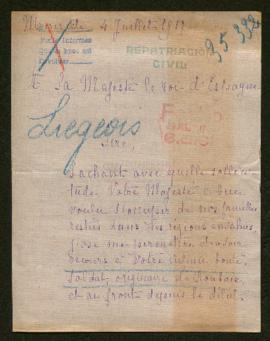 4 Juillet 1917
35 332
REPATRIACION
CIVIL
A Sa Majesté le roi d'Espagne
Liegeois
Sire,
Sachant avec quelle sollici-
tude Votre Majesté a bien
voulu s'occuper de nos familles
restées dans les régions envahies,
j'ose me permettre d'avoir
recours à Votre infinie bonté.
Soldat, originaire de Roubaix
et au front depuis le début,